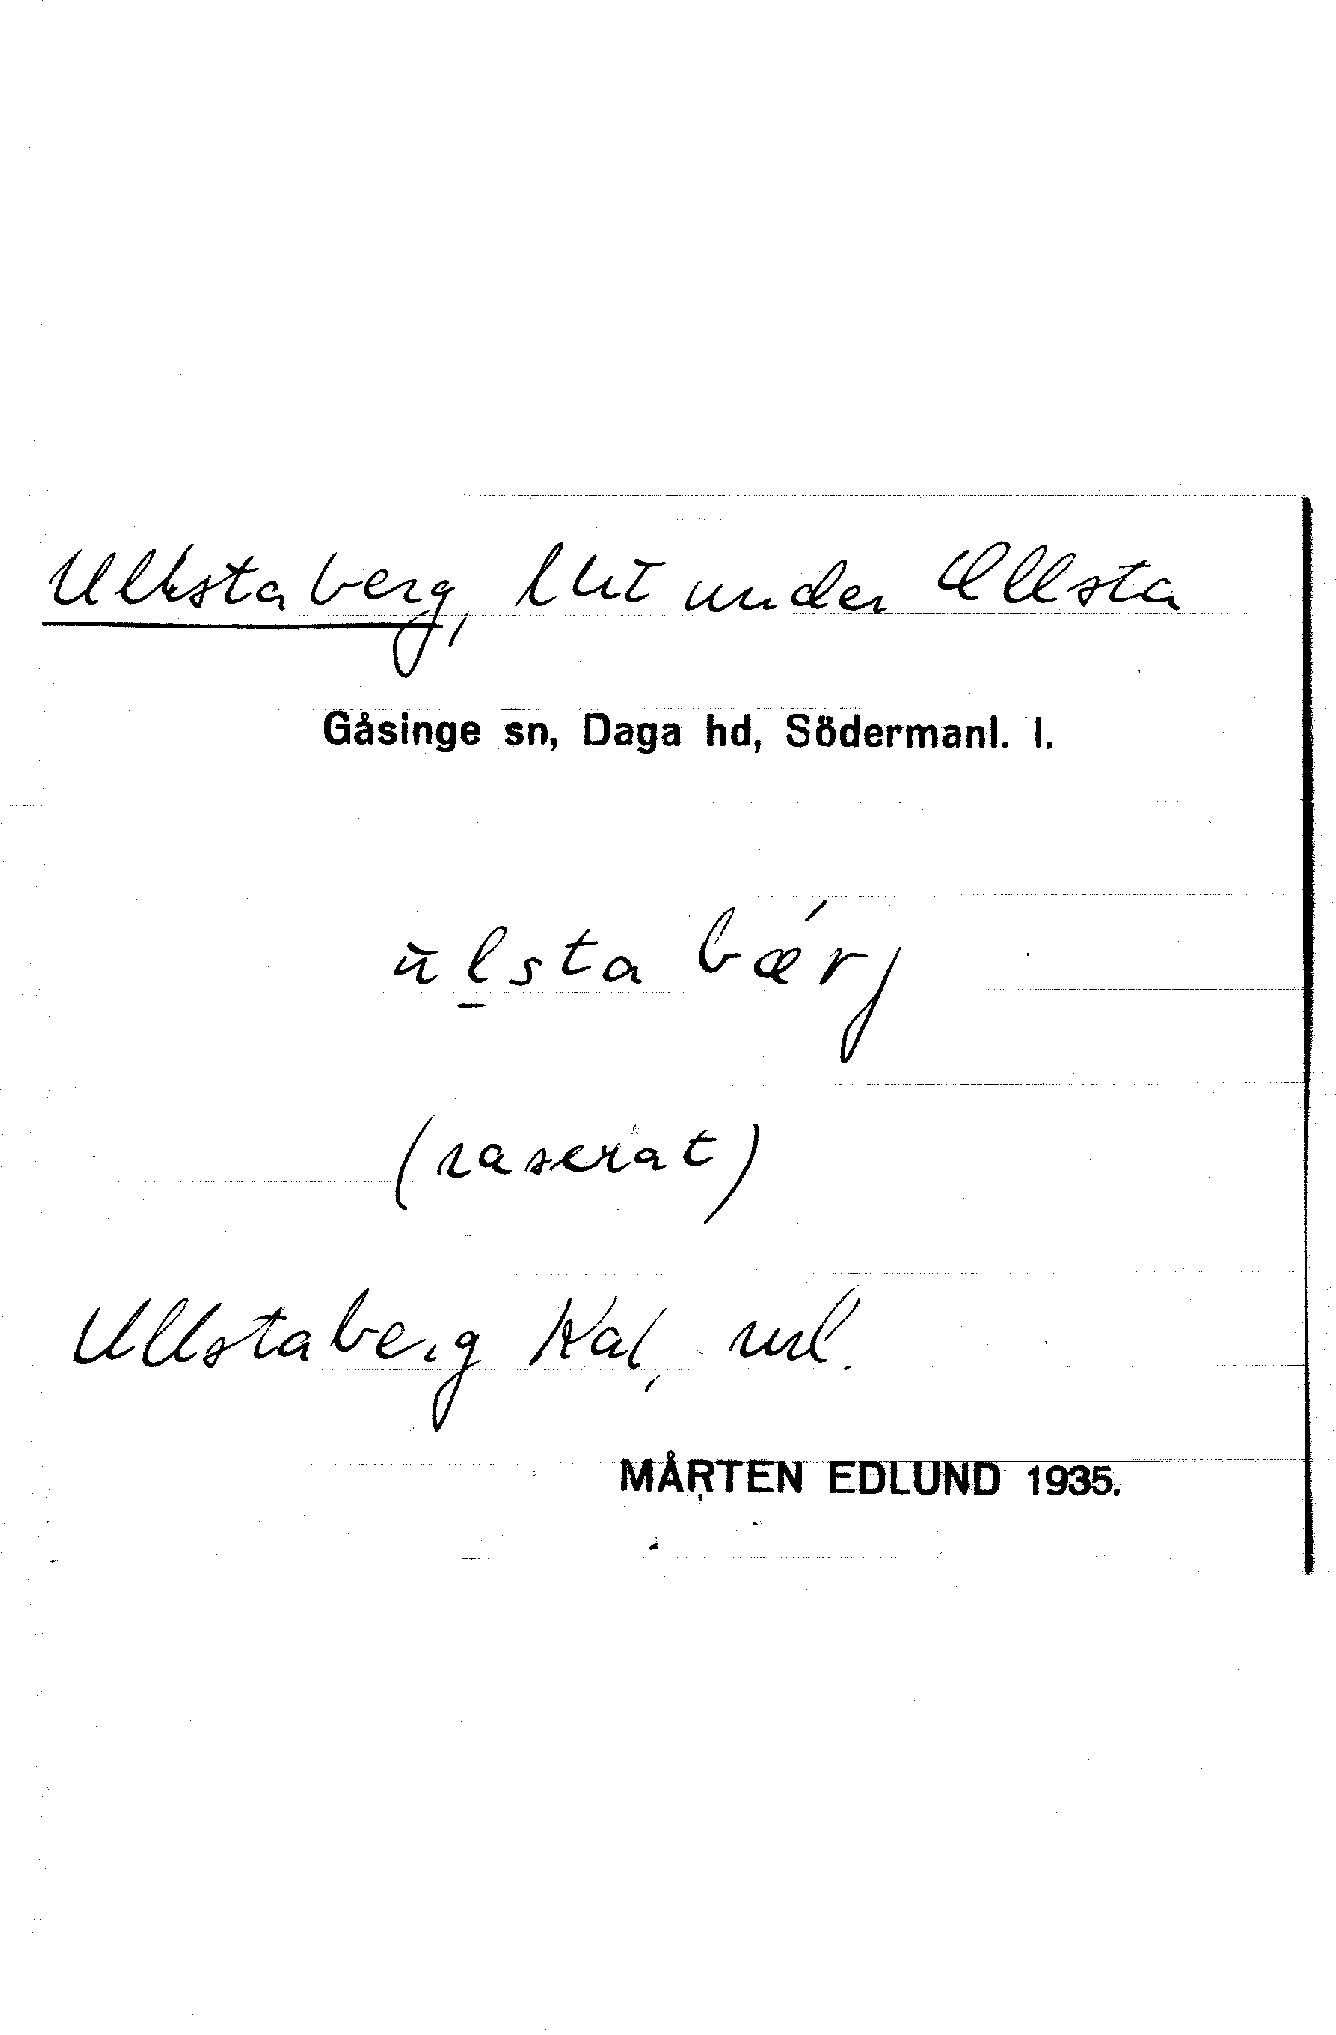 Ullstaberg, lht under Ullsta
Gåsinge sn, Daga hd, Södermanl. l.
ulsta bǽrj
(raserat)
Ullstaberg Ka(, url.
MÅRTEN EDLUND 1935.